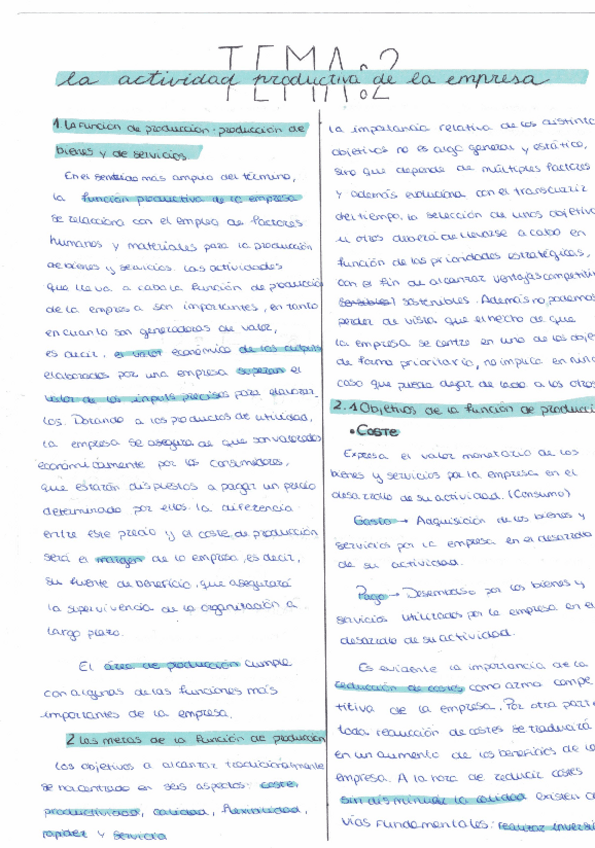 TEMA:2
la actividad productiva de la empresa
1. La función de producción: producción de
bienes y de servicios
En el sentido más amplio del término,
la función productiva de la empresa
se relaciona con el empleo de factores
humanos y materiales para la producción
de bienes y servicios. Las actividades
que lleva a cabo la función de producción
de la empresa son importantes, en tanto
en cuanto son generadoras de valor,
es decir, el valor económico de los outputs
elaborados por una empresa superan el
valor de los inputs precisos para elaborar
los. Dotando a los productos de utilidad,
la empresa se asegura de que son valorados
económicamente por los consumidores,
que estarán dispuestos a pagar un precio
determinado por ellos. La diferencia
entre este precio y el coste de producción
será el margen de la empresa, es decir,
su fuente de beneficio, que asegurará
la supervivencia de la organización a
largo plazo.
El área de producción cumple
con algunas de las funciones más
importantes de la empresa.
2 Las metas de la función de producción
Los objetivos a alcanzar tradicionalmente
se han centrado en seis aspectos: coste,
productividad, calidad, flexibilidad,
rapidez y servicio
La importancia relativa de los distinto
objetivos no es algo general y estático,
sino que depende de múltiples factores
y además evoluciona con el transcurrir
del tiempo. La selección de unos objetivo
u otros deberá de llevarse a cabo en
función de las prioridades estratégicas,
con el fin de alcanzar ventajas competitiv
sostenibles. Además no podemos
perder de vista que el hecho de que
la empresa se centre en uno de los obje
de forma prioritaria, no implica en
caso que pueda dejar de lado a los otros
2.1 Objetivos de la función de producci
• Coste
Expresa el valor monetario de los
bienes y servicios por la empresa en el
desarrollo de su actividad. (Consumo)
Gasto → Adquisición de los bienes y
servicios por la empresa en el desarrollo
de su actividad.
Pago → Desembolso por los bienes y
servicios utilizados por la empresa en el
desarrollo de su actividad.
Es evidente la importancia de la
reducción de costes como arma compe
titiva de la empresa. Por otra part
toda reducción de costes se traducirá
en un aumento de los beneficios de la
empresa. A la hora de reducir costes
sin disminuir la calidad existen
vías fundamentales: realizar inversi